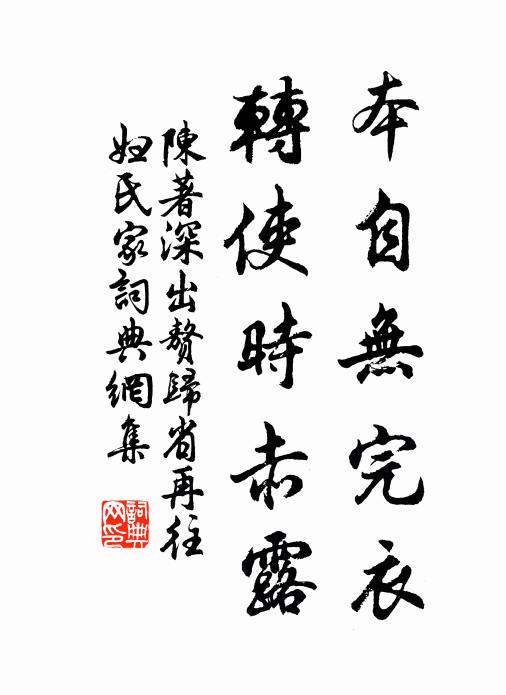 本自無完衣
轉使時赤露
陳著深出贅歸省再往
妇氏家詞典網集
詞典
网印